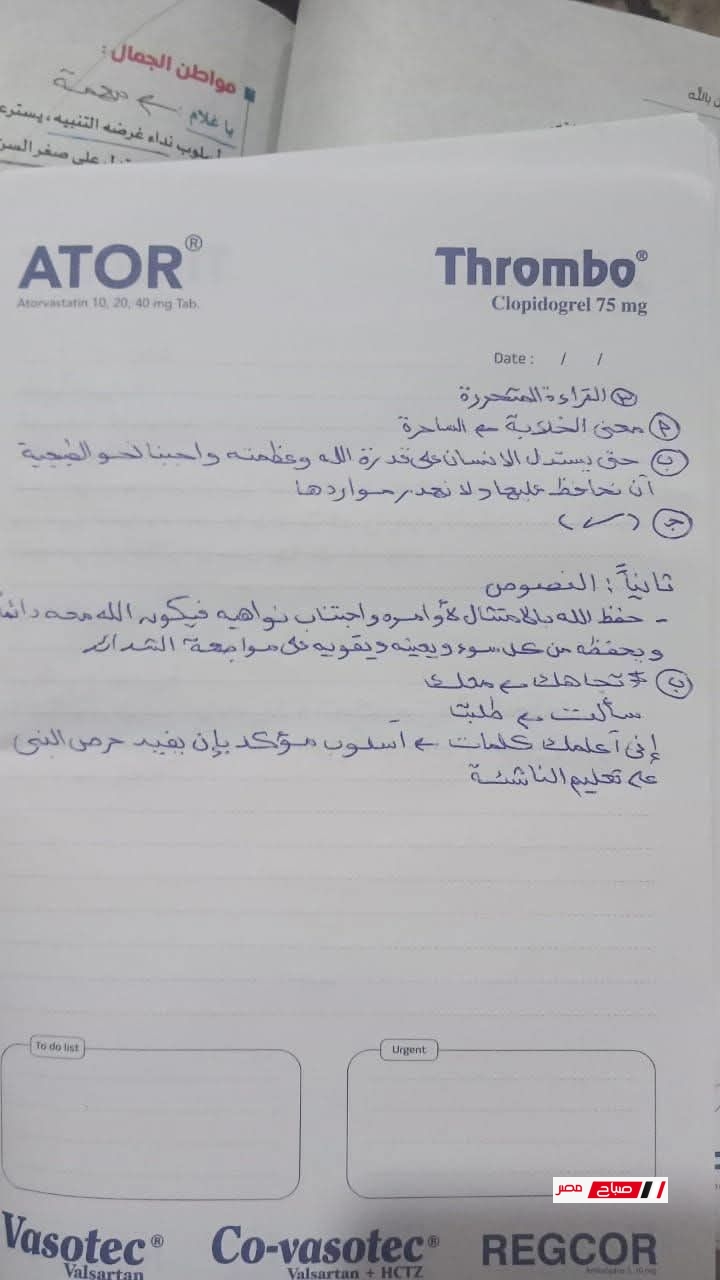 مواطن الجمال :
يا غلام ← مهمة
أسلوب نداء غرضه التنبيه ، يسترع
على صغر السن
بالله
ATOR®
Atorvastatin 10, 20, 40 mg Tab.
Thrombo®
Clopidogrel 75 mg
Date : / /
٣ القراءة المتحررة
م معنى الخلابة ← الساحرة
ب حتى يستدل الانسان على قدرة الله وعظمته واجبنا نحو الطبيعة
أن نحافظ عليها ولا نهدر مواردها
ج (✓)
ثانياً : النصوص
- حفظ الله بالامتثال لأوامره واجتناب نواهيه فيكون الله معه دائماً
ويحفظه من كل سوء ويعينه ويقويه على مواجهة الشدائد
ب * تجاهك ← معك
سألت ← طلبت
إنى أعلمك كلمات ← أسلوب مؤكد بإن يفيد حرص النبى
على تعليم الناشئة
To do list
Urgent
صباح مصر
Vasotec®
Valsartan
Co-vasotec®
Valsartan + HCTZ
REGCOR